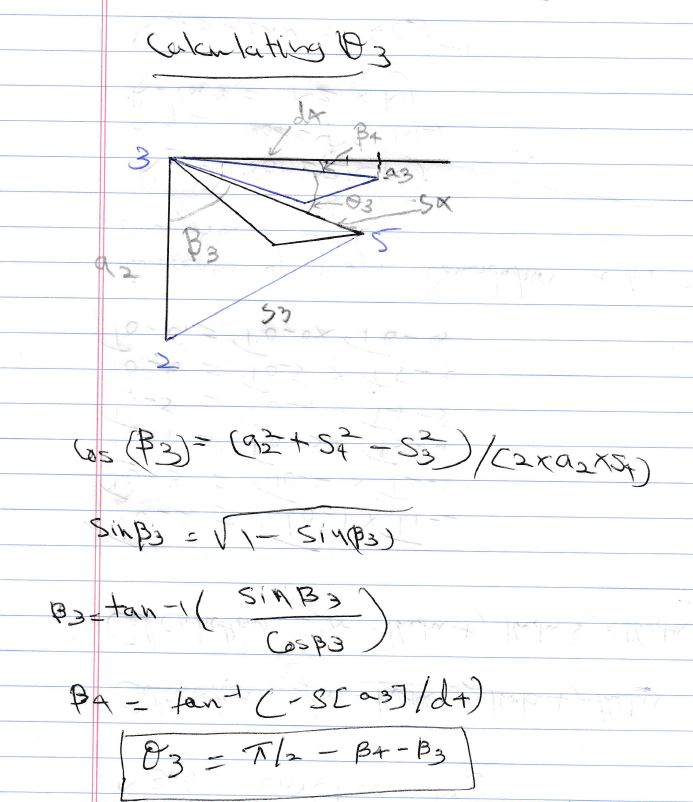 Calculating θ3
d4
β4
3
a3
θ3
S4
β3
5
a2
S3
2
cos(β3) = (a2² + S4² - S3²)/(2×a2×S4)
sinβ3 = √(1 - sin(β3))
β3 = tan-1(sinβ3/cosβ3)
β4 = tan-1(-S[a3]/d4)
θ3 = π/2 - β4 - β3